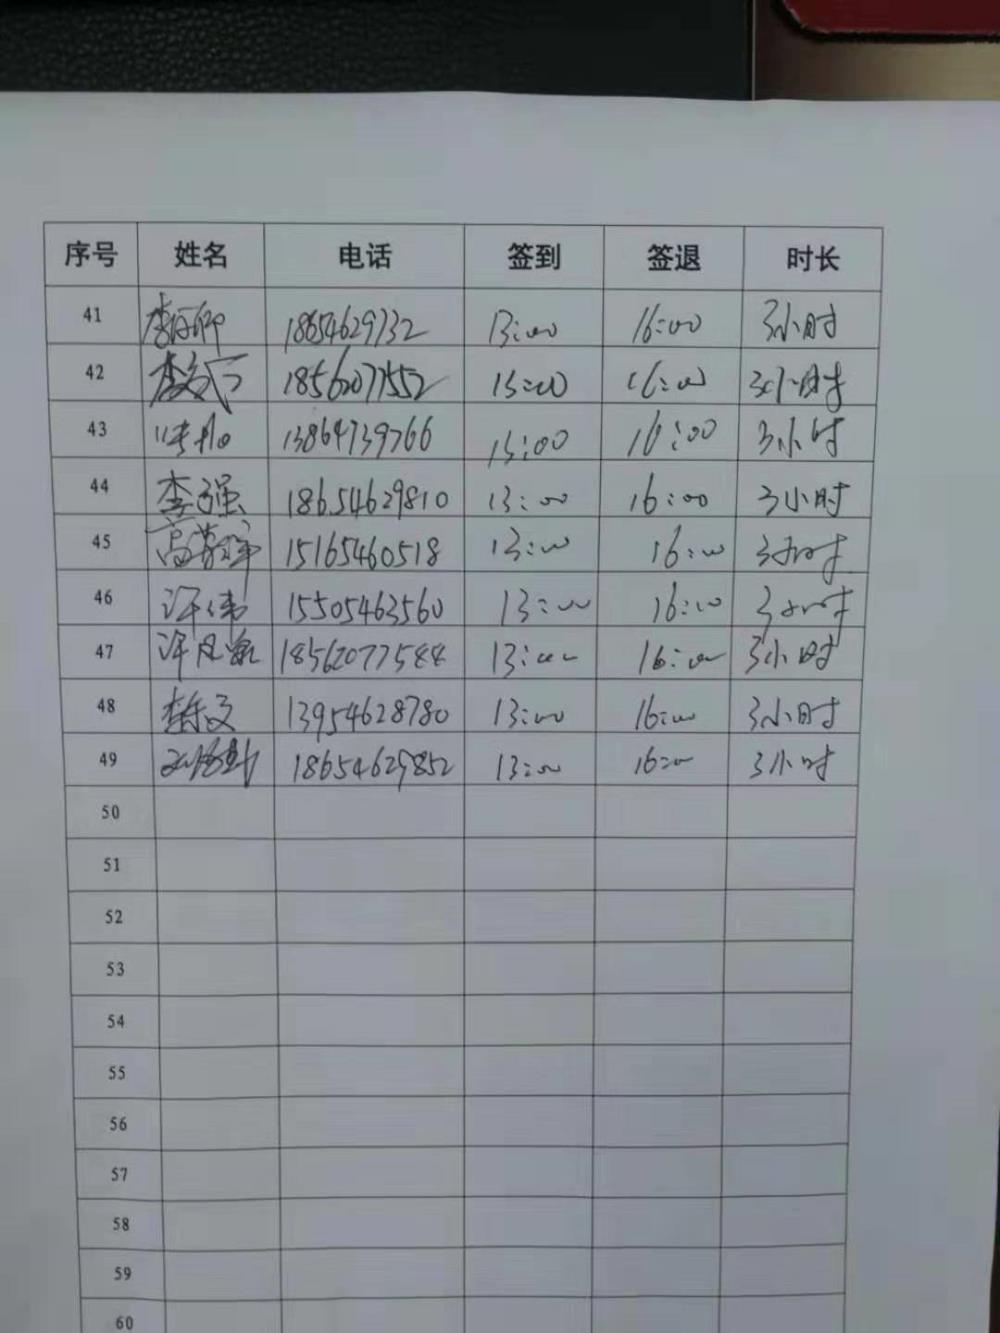 序号 姓名 电话 签到 签退 时长
41 18654629732 13:00 16:00 3小时
42 18562077552 13:00 16:00 3小时
43 13864739766 13:00 16:00 3小时
44 李强 18654629810 13:00 16:00 3小时
45 15165460518 13:00 16:00 3小时
46 许伟 15505463560 13:00 16:00 3小时
47 18562077588 13:00 16:00 3小时
48 13954628780 13:00 16:00 3小时
49 18654629852 13:00 16:00 3小时
50
51
52
53
54
55
56
57
58
59
60